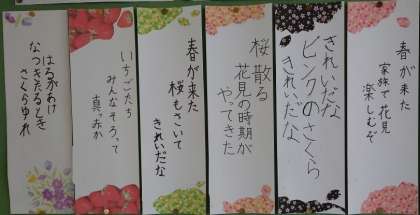 春が来た
家族で花見
楽しむぞ
きれいだな
ピンクのさくら
きれいだな
桜散る
花見の時期が
やってきた
春が来た
桜もさいて
きれいだな
いちごたち
みんなそろって
真っ赤か
はるがあけ
なつきたるとき
さくらゆれ